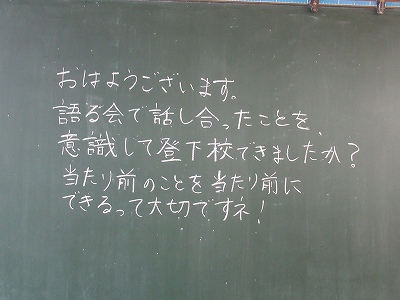 おはようございます。
語る会で話し合ったことを、
意識して登下校できましたか?
当たり前のことを当たり前に
できるって大切ですネ!